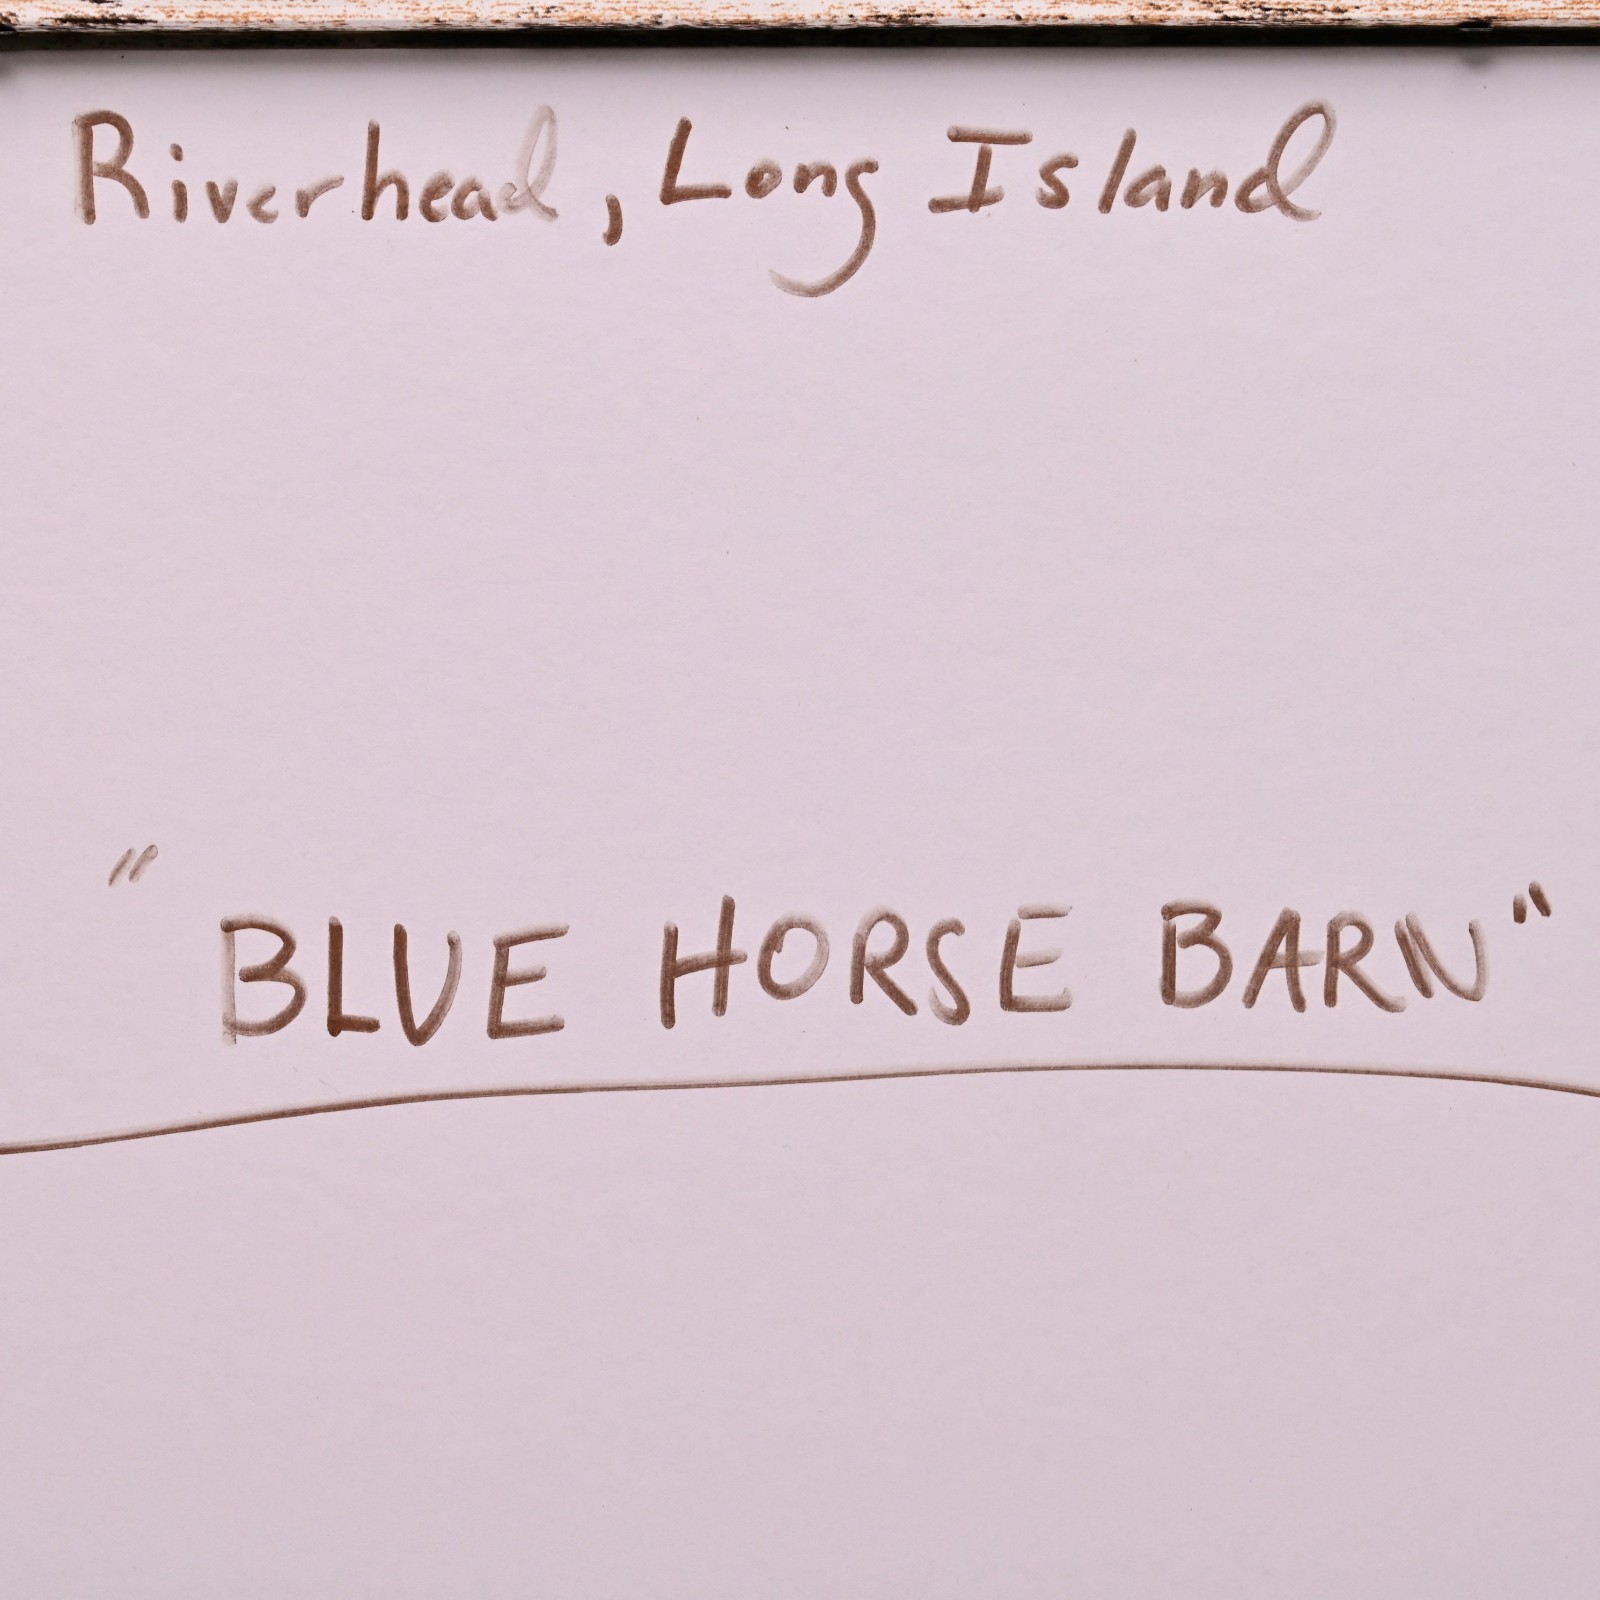 Riverhead, Long Island
"BLUE HORSE BARN"